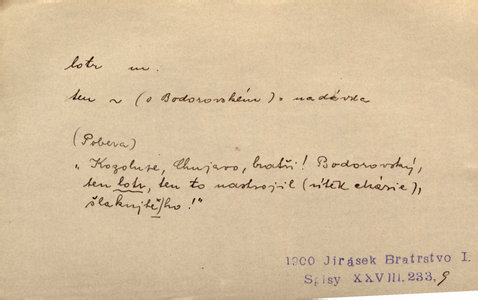 lotr m.
ten ~ (o Bodorovském) = nadávka
(Pobera)
„Kozoluse, Chujavo, bratři! Bodorovský,
ten lotr, ten to nastrojil (útěk chásie),
šlakujtě/ho!"
1900 Jirásek Bratrstvo I.
Spisy XXVIII.233, 9